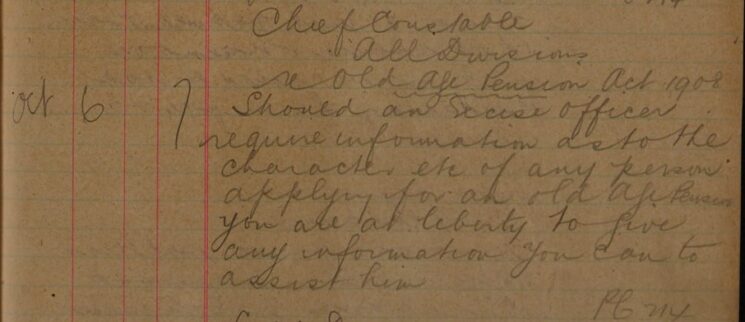 Chief Constable
All Divisions
re Old Age Pension Act 1908
Oct 6 7 Should an Excise officer
require information as to the
character etc of any person
applying for an old Age Pension
you are at liberty to give
any information you can to
assist him